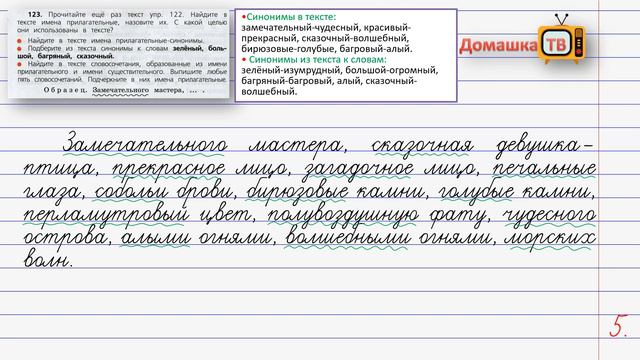 123. Прочитайте ещё раз текст упр. 122. Найдите в
тексте имена прилагательные, назовите их. С какой целью
они использованы в тексте?
● Найдите в тексте имена прилагательные-синонимы.
● Подберите из текста синонимы к словам зелёный, боль-
шой, багряный, сказочный.
● Найдите в тексте словосочетания, образованные из имени
прилагательного и имени существительного. Выпишите любые
пять словосочетаний. Подчеркните в них имена прилагательные.
Образец. Замечательного мастера, ... .
•Синонимы в тексте:
замечательный-чудесный, красивый-
прекрасный, сказочный-волшебный,
бирюзовые-голубые, багровый-алый.
• Синонимы из текста к словам:
зелёный-изумрудный, большой-огромный,
багряный-багровый, алый, сказочный-
волшебный.
Домашка ТВ
Замечательного мастера, сказочная девушка-
птица, прекрасное лицо, загадочное лицо, печальные
глаза, собольи брови, бирюзовые камни, голубые камни,
перламутровый цвет, полувоздушную фату, чудесного
острова, алыми огнями, волшебными огнями, морских
волн.
5.